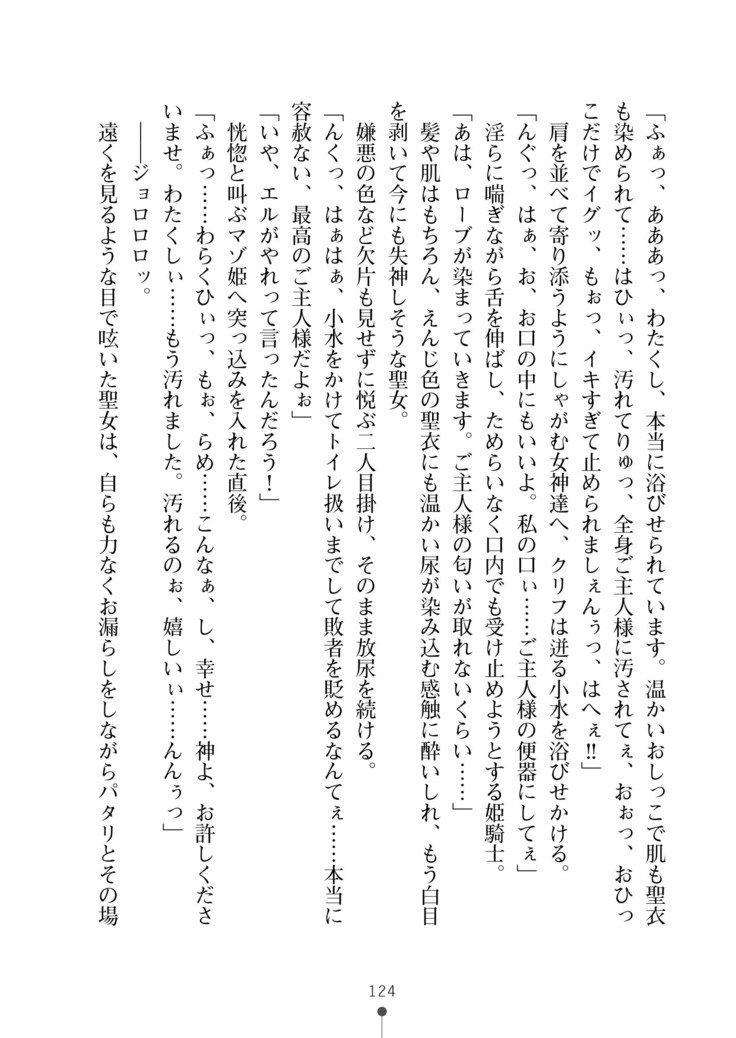 「ふぁっ、あああっ、わたくし、本当に浴びせられています。温かいおしっこで肌も聖衣
も染められて……はひぃっ、汚れてりゅっ、全身ご主人様に汚されてぇ、おぉっ、おひっ
こだけでイグッ、もぉっ、イキすぎて止められましぇんぅっ、はへぇ!!」
肩を並べて寄り添うようにしゃがむ女神達へ、クリフは迸る小水を浴びせかける。
「んぐっ、はぁ、お、お口の中にもいいよ。私の口ぃ……ご主人様の便器にしてぇ」
淫らに喘ぎながら舌を伸ばし、ためらいなく口内でも受け止めようとする姫騎士。
「あは、ローブが染まっていきます。ご主人様の匂いが取れないくらい……」
髪や肌はもちろん、えんじ色の聖衣にも温かい尿が染み込む感触に酔いしれ、もう白目
を剥いて今にも失神しそうな聖女。
嫌悪の色など欠片も見せずに悦ぶ二人目掛け、そのまま放尿を続ける。
「んくっ、はぁはぁ、小水をかけてトイレ扱いまでして敗者を貶めるなんてぇ……本当に
容赦ない、最高のご主人様だよぉ」
「いや、エルがやれって言ったんだろう！」
恍惚と叫ぶマゾ姫へ突っ込みを入れた直後。
「ふぁっ……わらくひぃっ、もぉ、らめ……こんなぁ、し、幸せ……神よ、お許しくださ
いませ。わたくしぃ……もう汚れました。汚れるのぉ、嬉しいぃ……んんぅっ」
――ジョロロロッ。
遠くを見るような目で呟いた聖女は、自らも力なくお漏らしをしながらパタリとその場
124